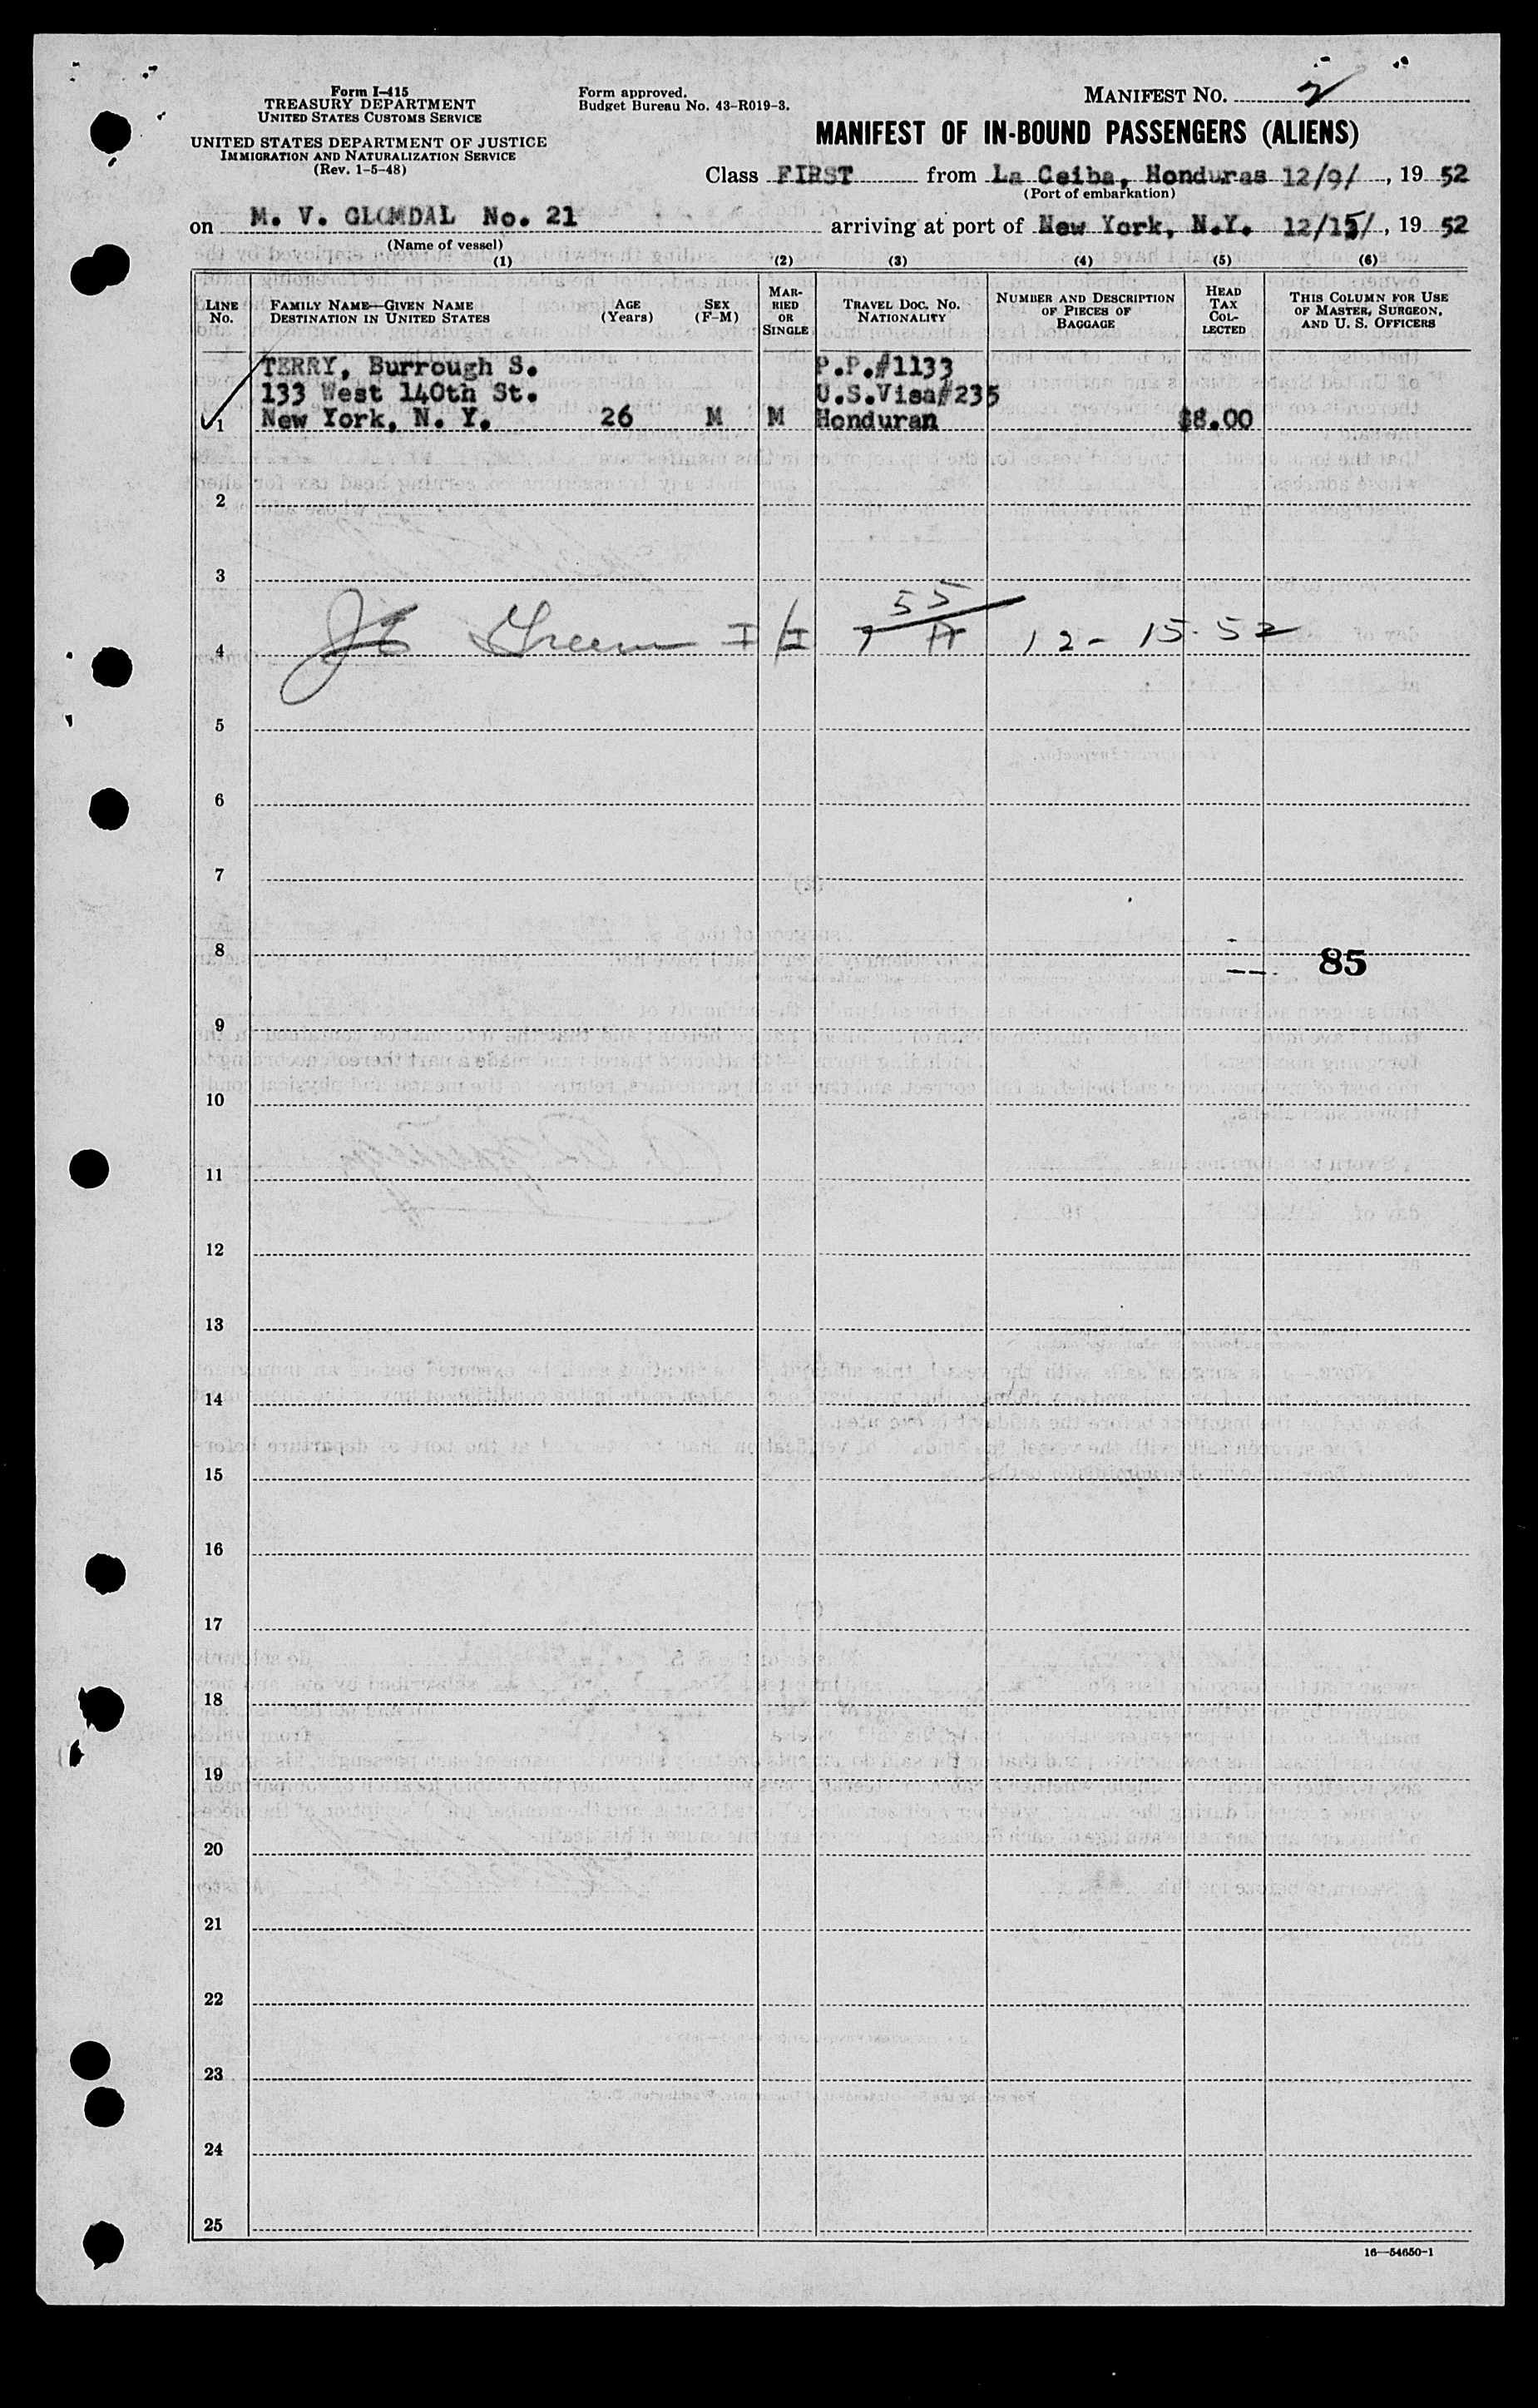 Form I-415
TREASURY DEPARTMENT
UNITED STATES CUSTOMS SERVICE
UNITED STATES DEPARTMENT OF JUSTICE
IMMIGRATION AND NATURALIZATION SERVICE
(Rev. 1-5-48)
Form approved.
Budget Bureau No. 43-R019-3.
MANIFEST NO. 2
MANIFEST OF IN-BOUND PASSENGERS (ALIENS)
Class FIRST from La Ceiba, Honduras 12/9/, 19 52
(Port of embarkation)
on M. V. GLOMDAL No. 21 arriving at port of New York, N.Y. 12/15/, 19 52
(Name of vessel)
(1) (2) (3) (4) (5) (6)
LINE No.
FAMILY NAME—GIVEN NAME
DESTINATION IN UNITED STATES
AGE (Years)
SEX (F-M)
MARRIED OR SINGLE
TRAVEL DOC. NO. NATIONALITY
NUMBER AND DESCRIPTION OF PIECES OF BAGGAGE
HEAD TAX COLLECTED
THIS COLUMN FOR USE OF MASTER, SURGEON, AND U. S. OFFICERS
TERRY, Burrough S. P.P.#1133
133 West 140th St. U.S.Visa#235
1 New York, N. Y. 26 M M Honduran $8.00
2
3
55
4 Green I/I 7 A 12-15-52
5
6
7
8 85
9
10
11
12
13
14
15
16
17
18
19
20
21
22
23
24
25
16—54650-1